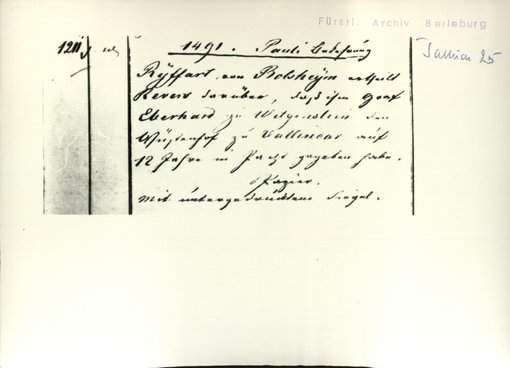 Fürstl. Archiv Berleburg
1491. Pauli Bekehrung
Ryffart von Bolsheym ertheilt
Revers darüber, daß ihm Graf
Eberhard zu Witgenstein den
Wüstenhof zu Vallendar auf
12 Jahre in Pacht gegeben habe.
Papier.
Mit untergedrücktem Siegel.